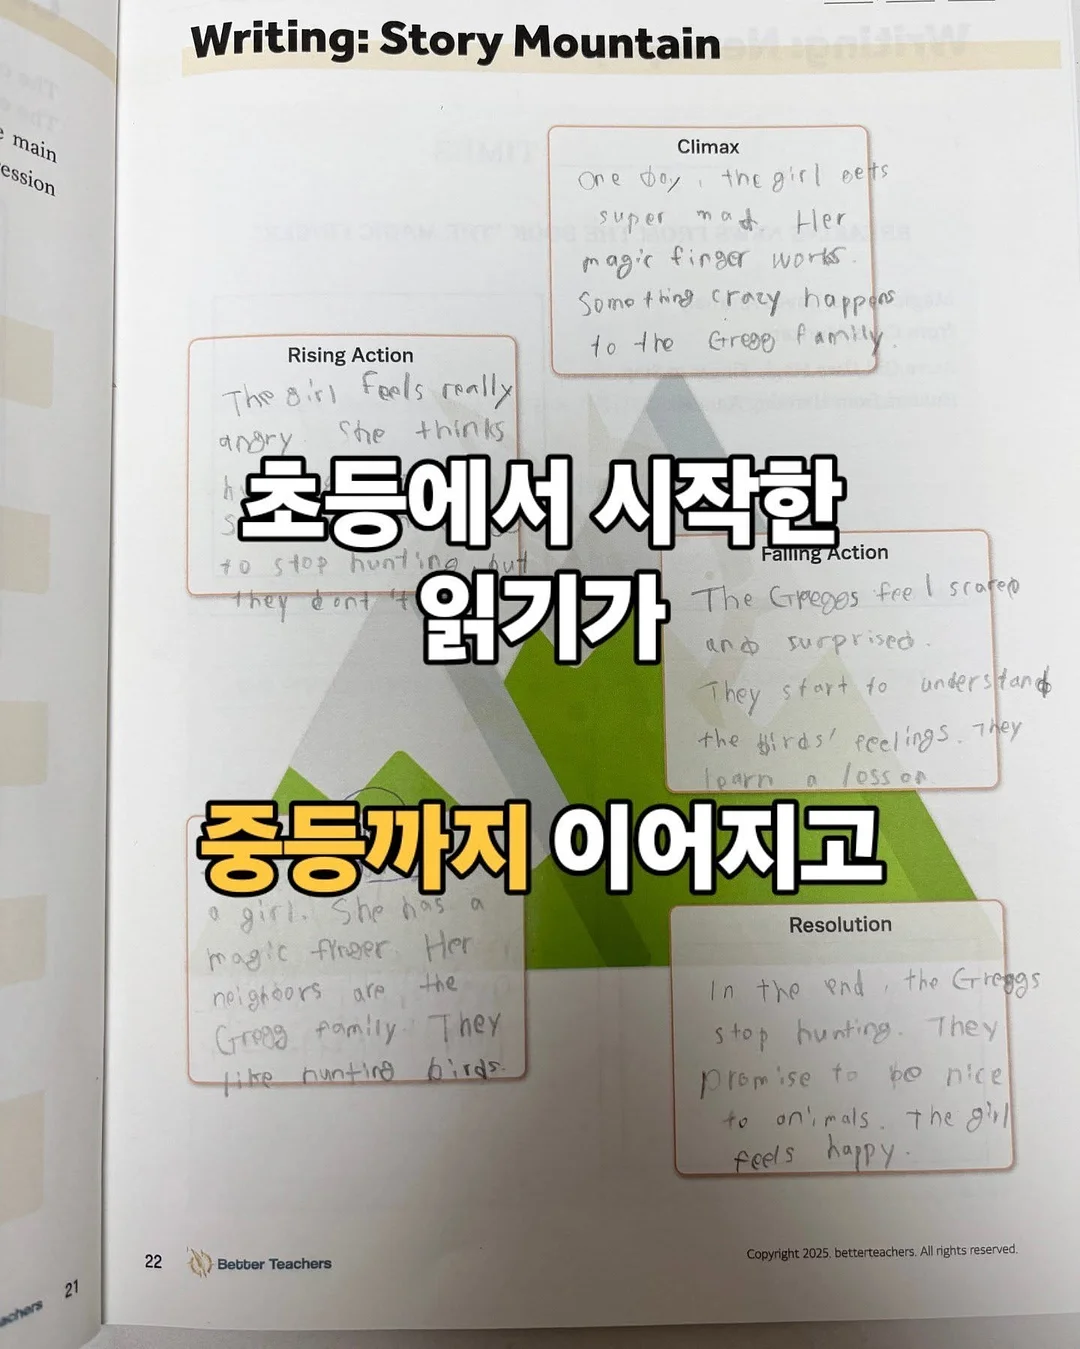 e main
ession
Writing: Story Mountain
Climax
One day, the girl gets
super mad Her
magic finger works.
Something crazy happens
to the Gregg family.
Rising Action
The girl feels really
angry. She thinks
to stop hunting, but
they dont
초등에서 시작한
읽기가
중등까지 이어지고
Falling Action
The Greggs feel scared
and surprised.
They start to understand
the birds' feelings. They
learn a lesson.
a girl. She has a
magic finger. Her
neighbors are the
Gregg family. They
like hunting birds.
Resolution
In the end, the Greggs
stop hunting. They
promise to be nice
to animals. The girl
feels happy.
22
Better Teachers
Copyright 2025. betterteachers. All rights reserved.
achers
21